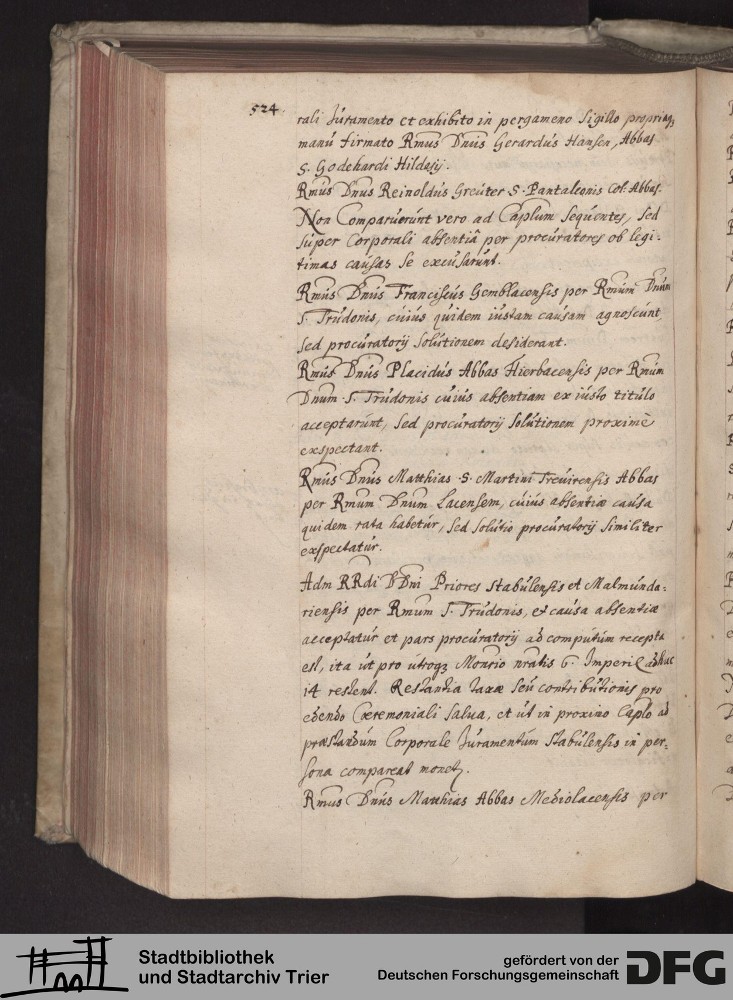 524.
rali Juramento et exhibito in pergameno Sigillo propriaq;
manu firmato Rmus Dnus Gerardus Hansen, Abbas
S. Godehardi Hildesij.
Rmus Dnus Reinoldus Greuter S. Pantaleonis Col. Abbas.
Non Comparuerunt vero ad Caplum Sequentes, Sed
Super Corporali absentiâ per procuratores ob legi-
timas causas Se excusarunt.
Rmus Dnus Franciscus Gemblacensis per Rmum Dnum
S. Trudonis, cuius quidem iustam causam agnoscunt,
Sed procuratorij Solutionem desiderant.
Rmus Dnus Placidus Abbas Hierbacensis per Rmum
Dnum S. Trudonis cuius absentiam ex iusto titulo
acceptarunt, Sed procuratorij Solutionem proximè
exspectant.
Rmus Dnus Matthias S. Martini Treuirensis Abbas
per Rmum Dnum Lacensem, cuius absentiæ causa
quidem rata habetur, Sed Solutio procuratorij Similiter
exspectatur.
Adm RRdi DDni Priores Stabulensis et Malmunda=
riensis per Rmum S. Trudonis, et causa absentiæ
acceptatur et pars procuratorij ad computum recepta
est, ita ut pro utroq; Monrio nratis 6. Imperil adhuc
14 restent. Restantia taxæ Seu contributionis pro
edendo Cæremoniali Salua, et ut in proximo Caplo ad
præstandum Corporale Juramentum Stabulensis in per=
sona compareat monet.
Rmus Dnus Matthias Abbas Mediolacensis per
Stadtbibliothek
und Stadtarchiv Trier
gefördert von der
Deutschen Forschungsgemeinschaft
DFG